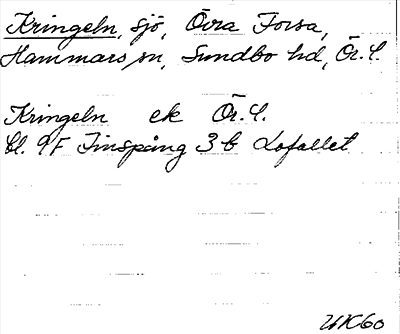 Kringeln, sjö, Övra Forsa,
Hammars sn, Sundbo hd, Ör. l.
Kringeln ek Ör. l.
bl. 9F Finspång 3 b Lofallet
UK60